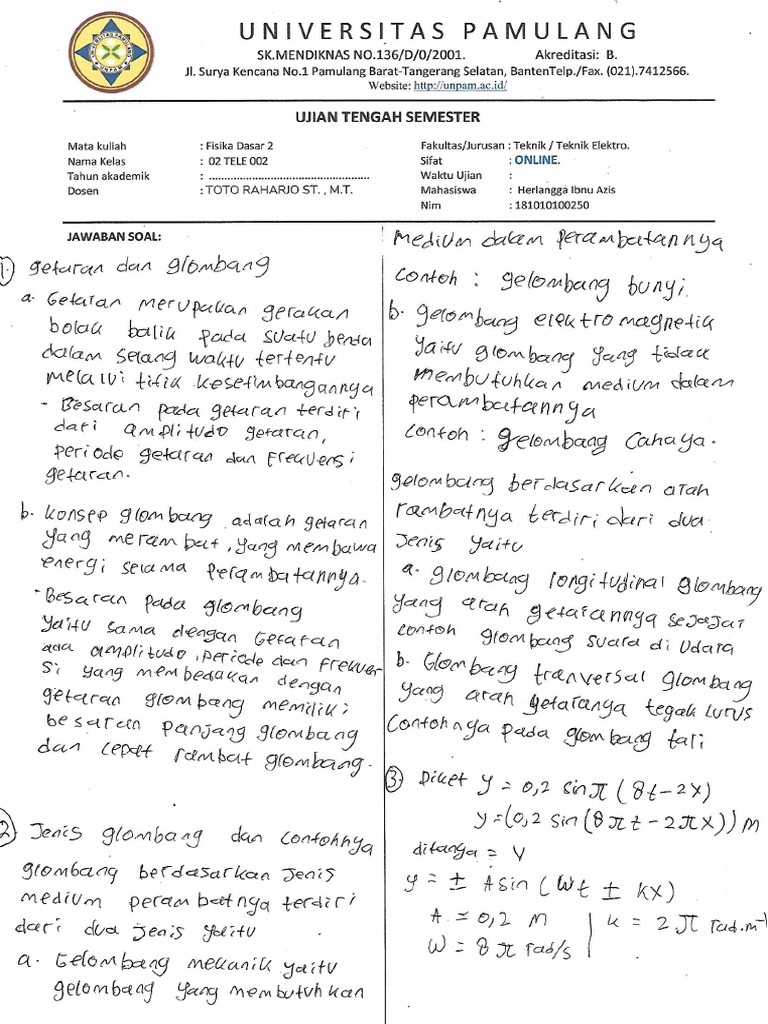 UNIVERSITAS PAMULANG
SK.MENDIKNAS NO.136/D/0/2001. Akreditasi: B.
Jl. Surya Kencana No.1 Pamulang Barat-Tangerang Selatan, BantenTelp./Fax. (021).7412566.
Website: http://unpam.ac.id/
UJIAN TENGAH SEMESTER
Mata kuliah : Fisika Dasar 2
Nama Kelas : 02 TELE 002
Tahun akademik : ....................................................
Dosen : TOTO RAHARJO ST. , M.T.
Fakultas/Jurusan : Teknik / Teknik Elektro.
Sifat : ONLINE.
Waktu Ujian :
Mahasiswa : Herlangga Ibnu Azis
Nim : 181010100250
JAWABAN SOAL:
1. getaran dan glombang
a. Getaran merupakan gerakan
bolak balik pada suatu benda
dalam selang waktu tertentu
melalui titik kesetimbangannya
- Besaran pada getaran terdiri
dari amplitudo getaran,
periode getaran dan frekuensi
getaran.
b. konsep glombang adalah getaran
yang merambat, yang membawa
energi selama perambatannya.
- Besaran pada glombang
yaitu sama dengan Getaran
ada amplitudo, periode dan frekuen
si yang membedakan dengan
getaran glombang memiliki
besaran panjang glombang
dan cepat rambat glombang.
2 Jenis glombang dan contohnya
glombang berdasarkan Jenis
medium perambatnya terdiri
dari dua jenis yaitu
a. Gelombang mekanik yaitu
gelombang yang membutuhkan
medium dalam perambatannya
contoh : gelombang bunyi.
b. gelombang elektromagnetik
yaitu glombang yang tidak
membutuhkan medium dalam
perambatannya
contoh : gelombang Cahaya.
gelombang berdasarkan arah
rambatnya terdiri dari dua
Jenis yaitu
a. glombang longitudinal glombang
yang arah getarannya sejajar
contoh glombang suara di Udara
b. Glombang tranversal glombang
yang arah getaranya tegak lurus
Contohnya pada glombang tali
3. Diket y = 0,2 sin π (8t - 2x)
y = (0,2 sin (8πt - 2πx)) M
ditanya = V
y = ± A sin (Wt ± kx)
A = 0,2 M | k = 2 π rad.m⁻¹
W = 8 π rad/s